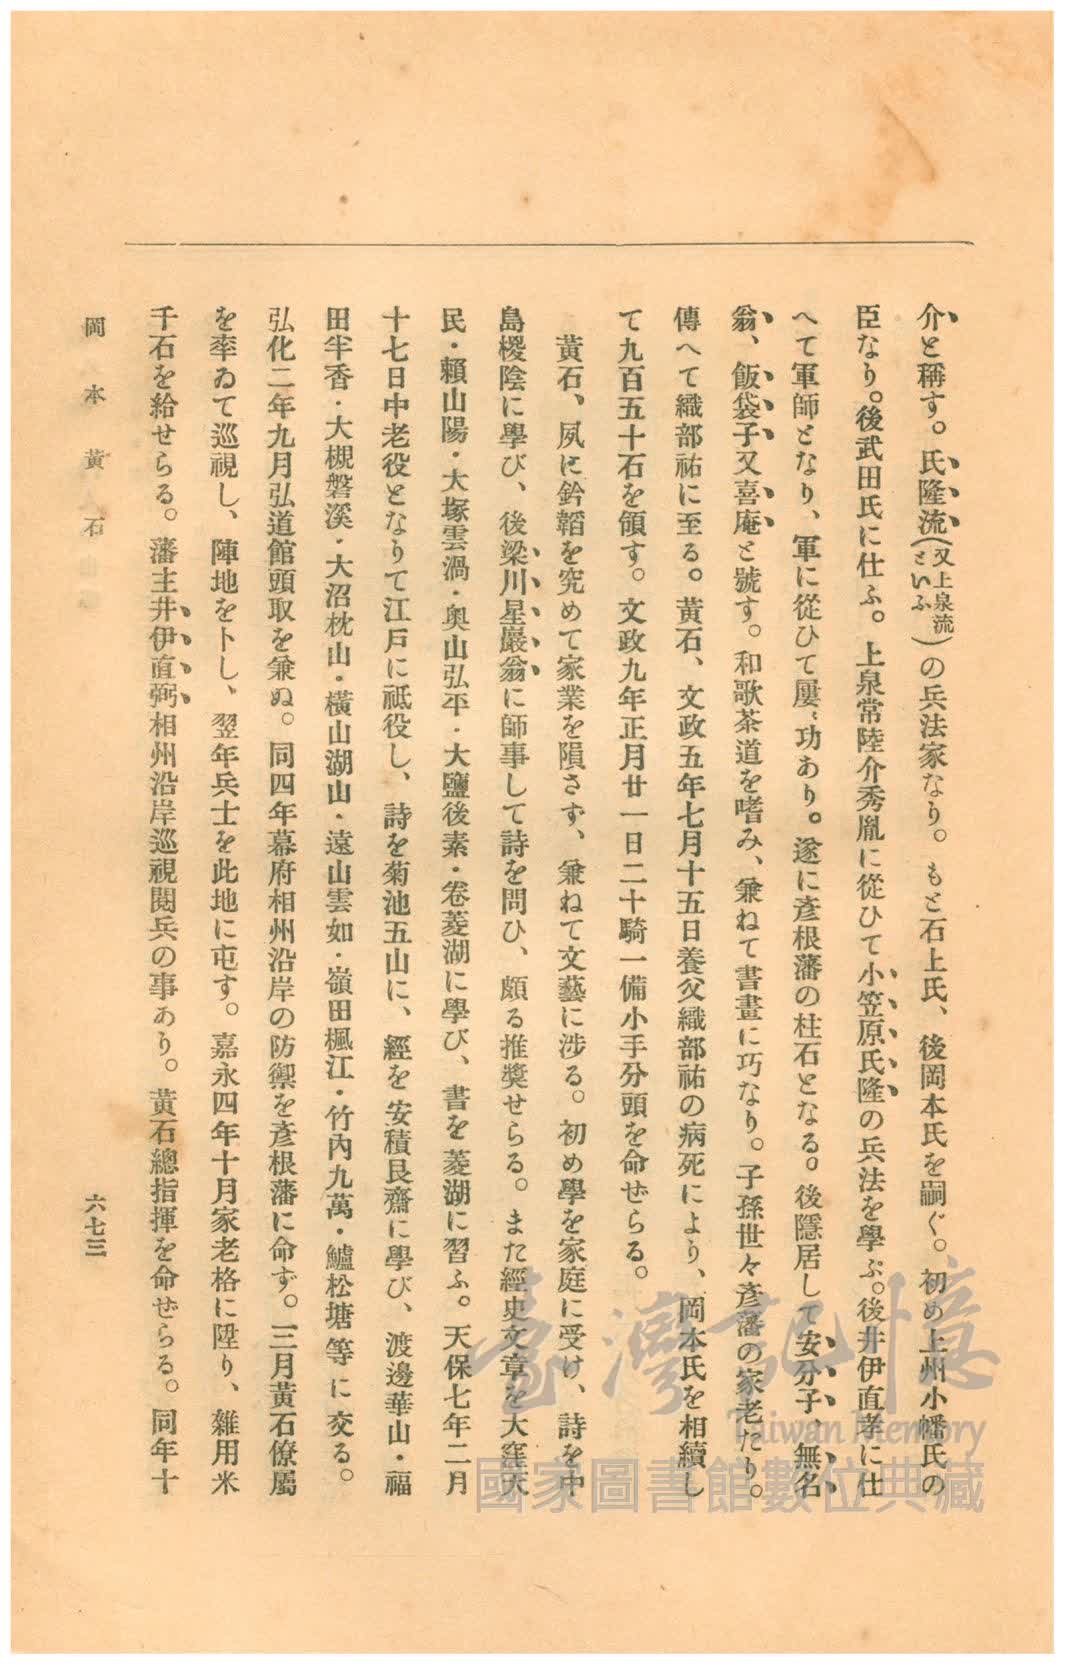 介と稱す。氏隆流(又上泉流といふ)の兵法家なり。もと石上氏、後岡本氏を嗣ぐ。初め上州小幡氏の
臣なり。後武田氏に仕ふ。上泉常陸介秀胤に從ひて小笠原氏隆の兵法を學ぶ。後井伊直孝に仕
へて軍師となり、軍に從ひて屢〻功あり。遂に彥根藩の柱石となる。後隱居して安分子、無名
翁、飯袋子又喜庵と號す。和歌茶道を嗜み、兼ねて書畫に巧なり。子孫世々彥藩の家老たり。
傳へて織部祐に至る。黃石、文政五年七月十五日養父織部祐の病死により、岡本氏を相續し
て九百五十石を領す。文政九年正月廿一日二十騎一備小手分頭を命ぜらる。
黃石、夙に鈐韜を究めて家業を隕さず、兼ねて文藝に涉る。初め學を家庭に受け、詩を中
島椶陰に學び、後梁川星巖翁に師事して詩を問ひ、頗る推獎せらる。また經史文章を大窪天
民・賴山陽・大塚雲渦・奧山弘平・大鹽後素・卷菱湖に學び、書を菱湖に習ふ。天保七年二月
十七日中老役となりて江戶に祗役し、詩を菊池五山に、經を安積艮齋に學び、渡邊華山・福
田半香・大槻磐溪・大沼枕山・橫山湖山・遠山雲如・嶺田楓江・竹內九萬・鱸松塘等に交る。
弘化二年九月弘道館頭取を兼ぬ。同四年幕府相州沿岸の防禦を彥根藩に命ず。三月黃石僚屬
を率ゐて巡視し、陣地をトし、翌年兵士を此地に屯す。嘉永四年十月家老格に陞り、雜用米
千石を給せらる。藩主井伊直弼相州沿岸巡視閱兵の事あり。黃石總指揮を命ぜらる。同年十
岡本黃石
六七三
臺灣記憶
Taiwan Memory
國家圖書館數位典藏